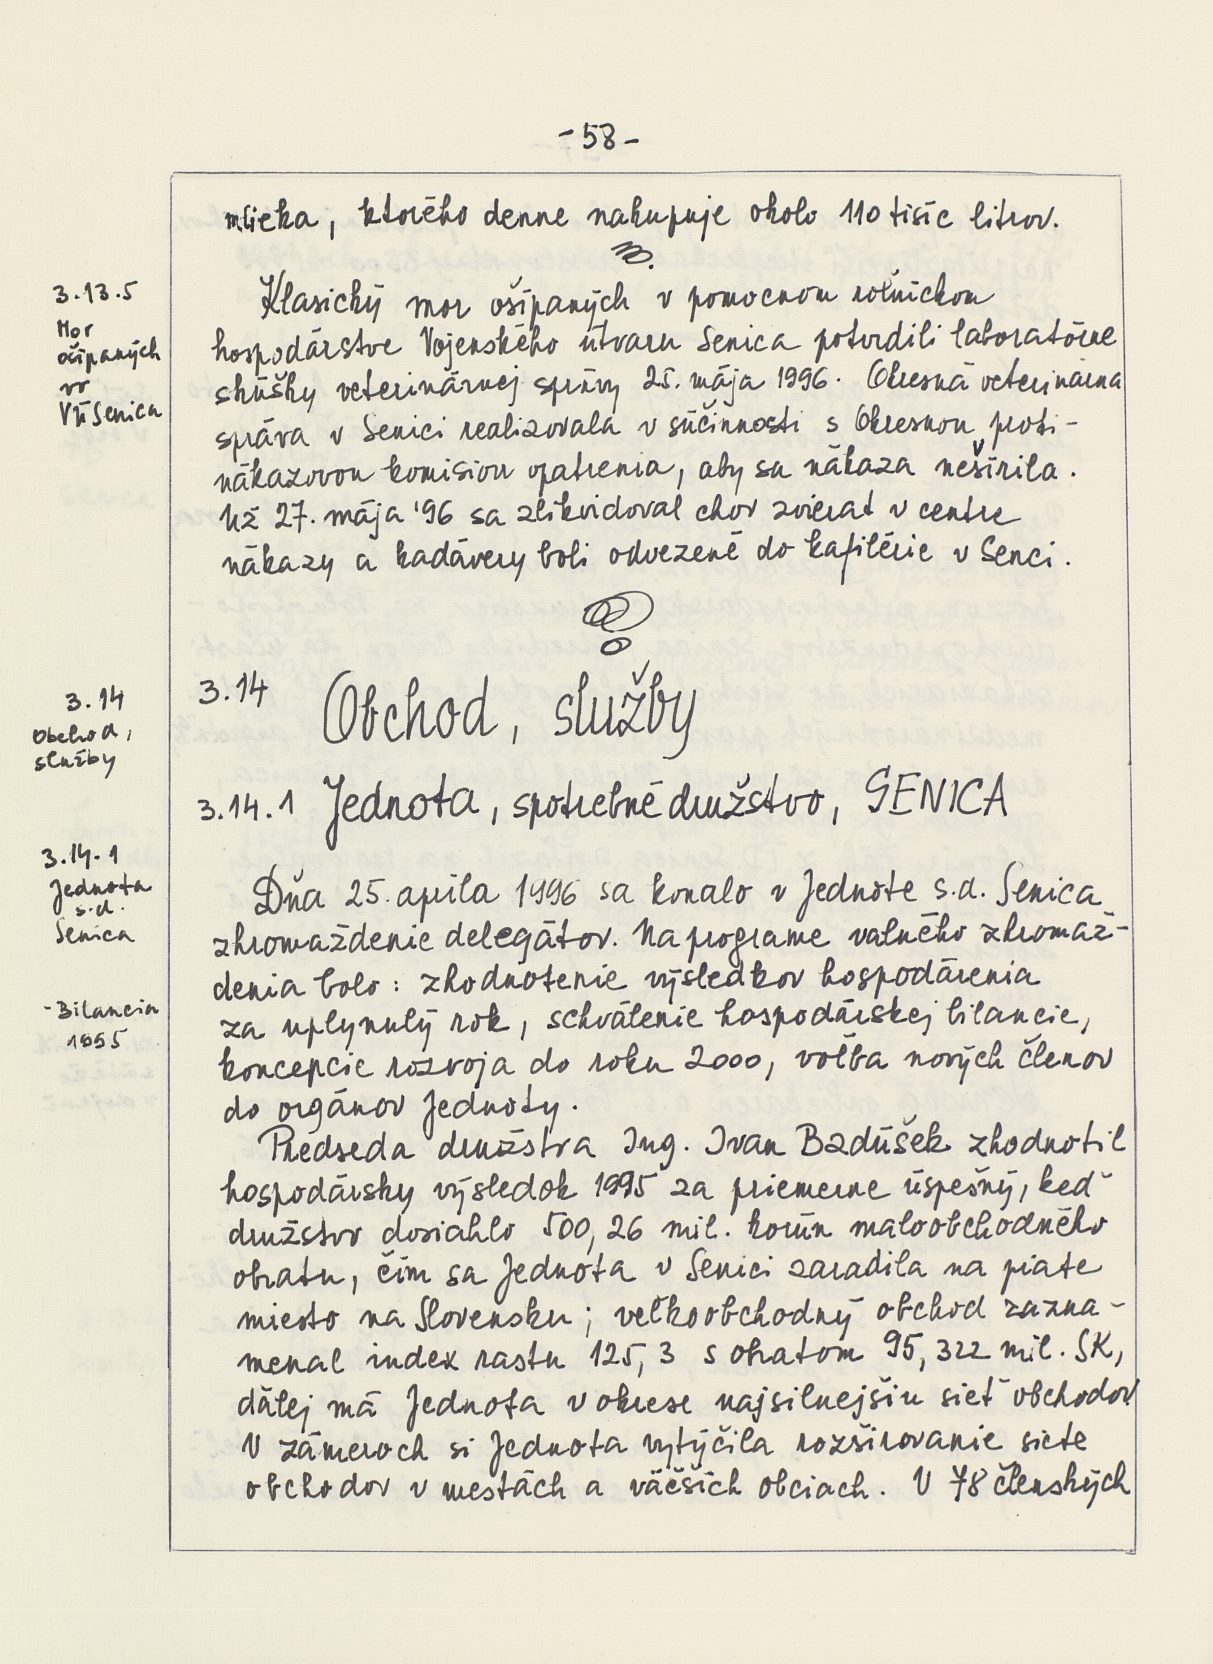 -58-
mlieka, ktorého denne nakupuje okolo 110 tisíc litrov.
3.13.5
Mor
ošípaných
vo
VÚ Senica
Klasický mor ošípaných v pomocnom roľníckom
hospodárstve Vojenského útvaru Senica potvrdili laboratórne
skúšky veterinárnej správy 25. mája 1996. Okresná veterinárna
správa v Senici realizovala v súčinnosti s Okresnou proti-
nákazovou komisiou opatrenia, aby sa nákaza nešírila.
Už 27. mája '96 sa zlikvidoval chov zvierat v centre
nákazy a kadávery boli odvezené do kafilérie v Senci.
3.14
Obchod,
služby
3.14 Obchod, služby
3.14.1 Jednota, spotrebné družstvo, SENICA
3.14.1
Jednota
s.d.
Senica
Dňa 25. apríla 1996 sa konalo v Jednote s.d. Senica
zhromaždenie delegátov. Na programe valného zhromaž-
denia bolo: zhodnotenie výsledkov hospodárenia
-Bilancia
1995
za uplynulý rok, schválenie hospodárskej bilancie,
koncepcie rozvoja do roku 2000, voľba nových členov
do orgánov Jednoty.
Predseda družstva Ing. Ivan Bzdúšek zhodnotil
hospodársky výsledok 1995 za priemerne úspešný, keď
družstvo dosiahlo 500,26 mil. korún maloobchodného
obratu, čím sa Jednota v Senici zaradila na piate
miesto na Slovensku; veľkoobchodný obchod zazna-
menal index rastu 125,3 s obratom 95,322 mil. SK,
ďalej má Jednota v okrese najsilnejšiu sieť obchodov.
V zámeroch si Jednota vytýčila rozširovanie siete
obchodov v mestách a väčších obciach. V 78 členských